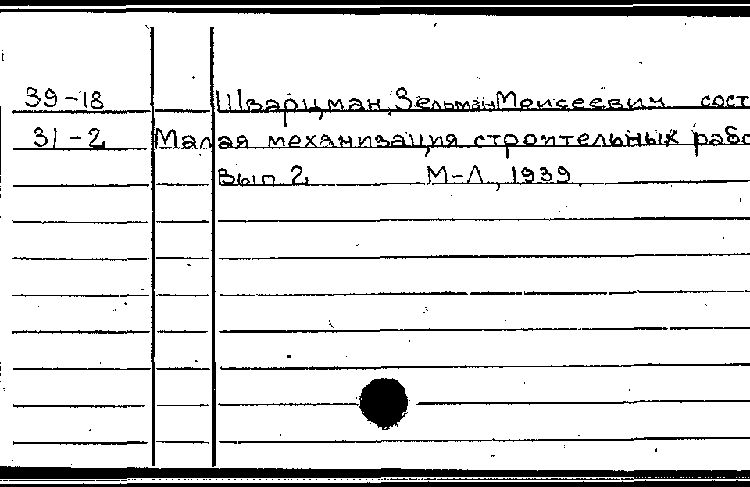 39-18 Шварцман, Зельман Моисеевич сост
31-2 Малая механизация строительных рабо
Вып 2. М-Л., 1939.